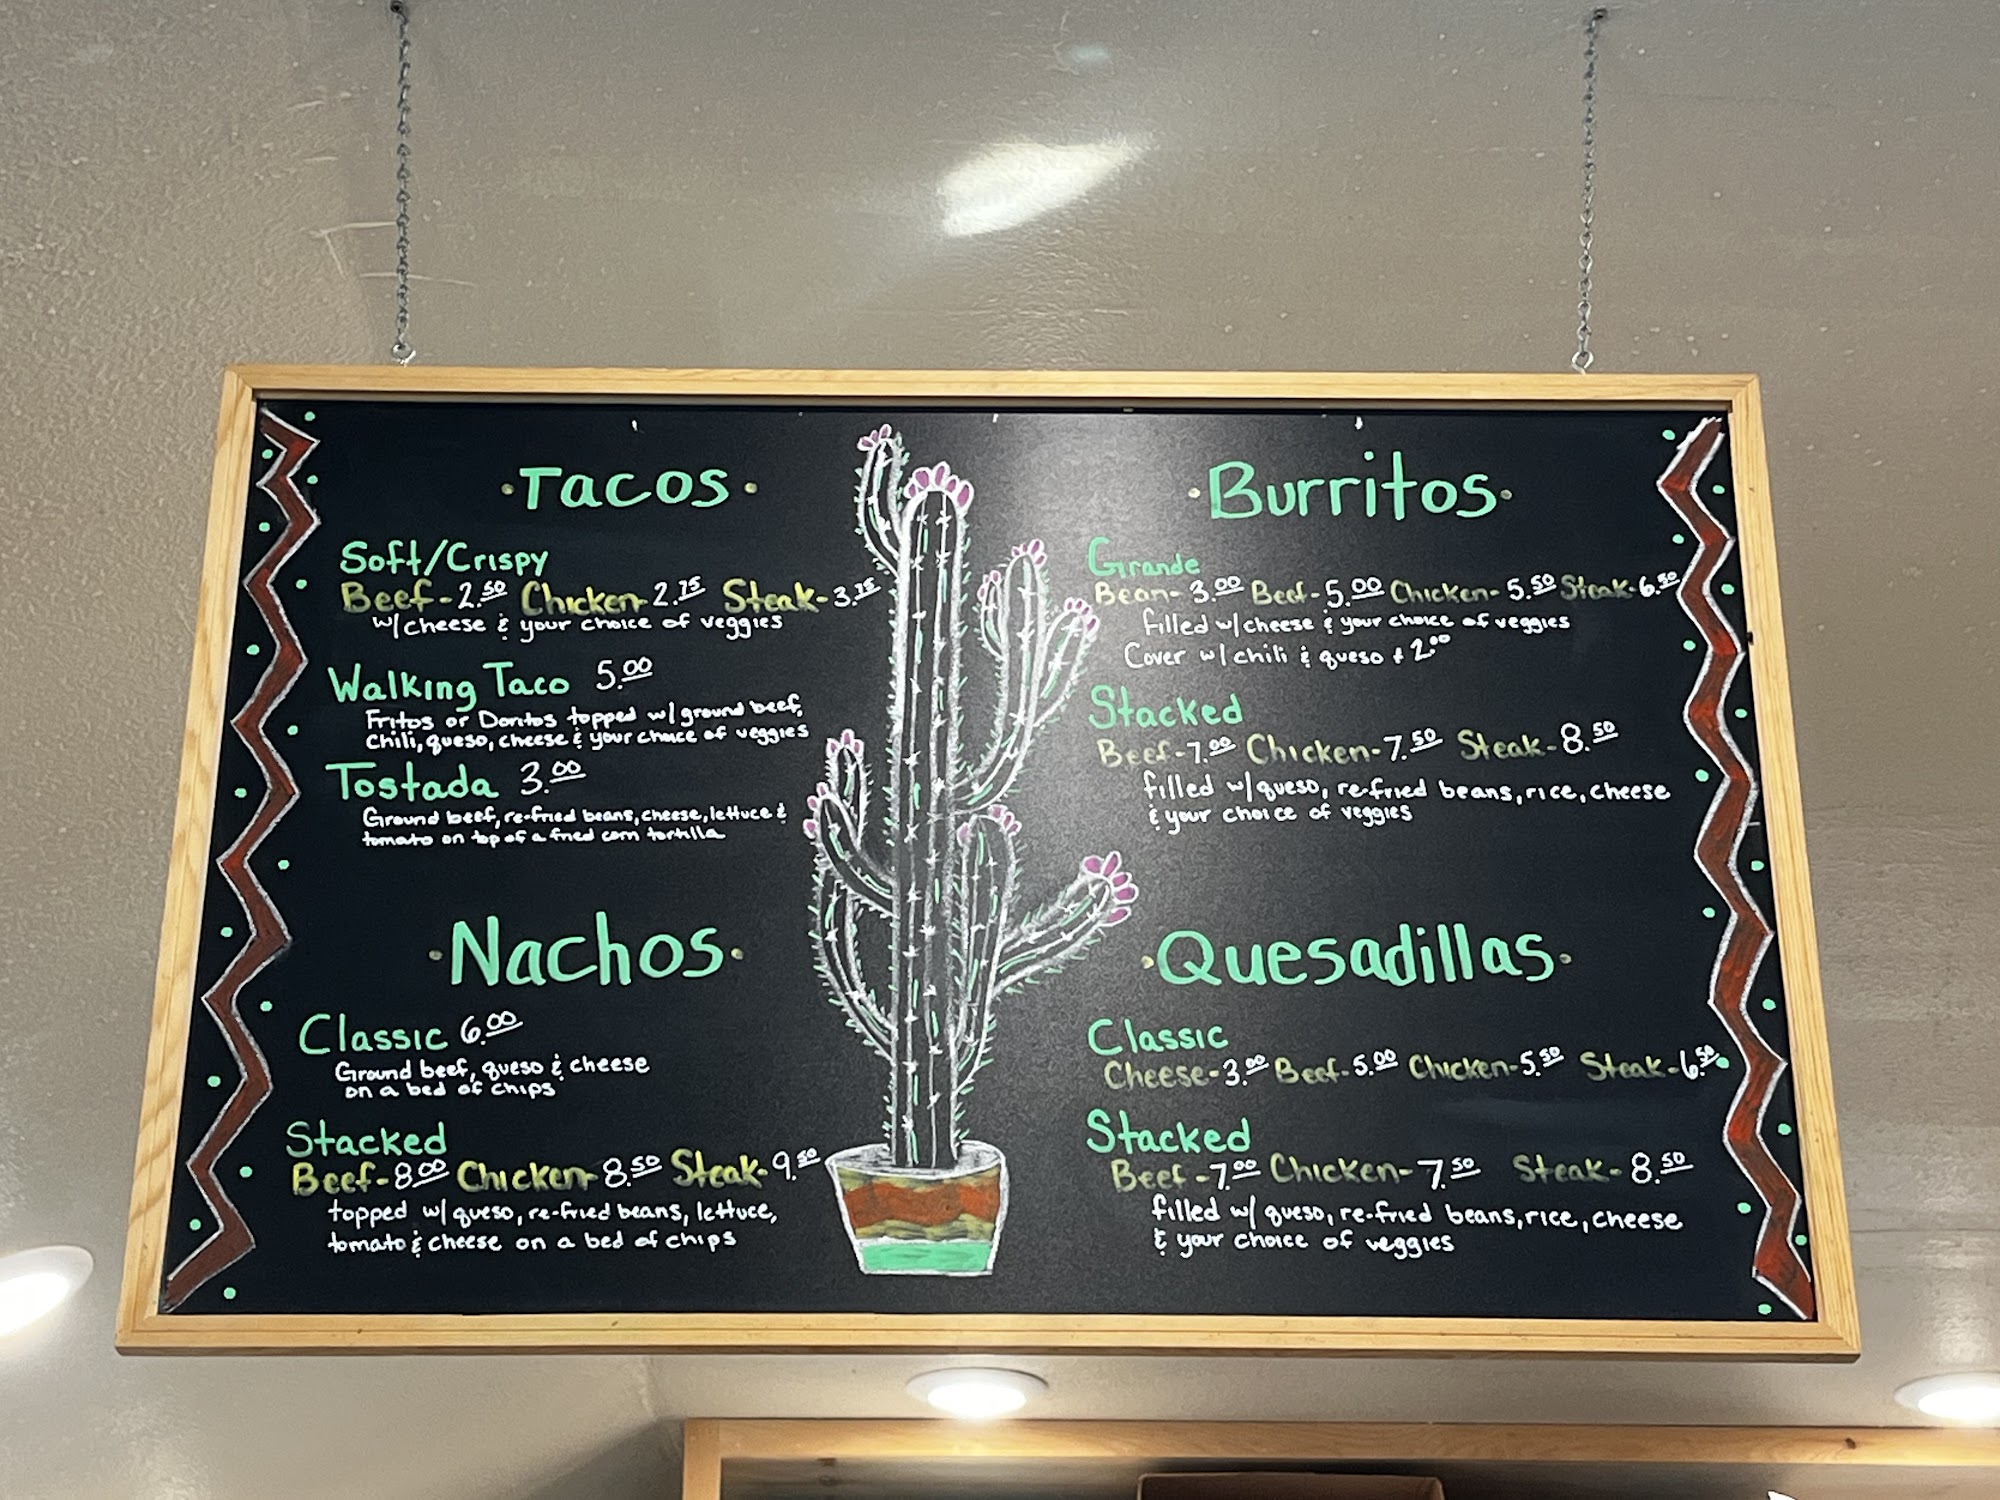 Tacos
Soft/Crispy
Beef-2.50 Chicken-2.75 Steak-3.75
w/cheese & your choice of veggies
Walking Taco 5.00
Fritos or Doritos topped w/ground beef,
Chili, queso, cheese & your choice of veggies
Tostada 3.00
Ground beef, re-fried beans, cheese, lettuce &
tomato on top of a fried corn tortilla
Nachos
Classic 6.00
Ground beef, queso & cheese
on a bed of chips
Stacked
Beef-8.00 Chicken-8.50 Steak-9.50
topped w/queso, re-fried beans, lettuce,
tomato & cheese on a bed of chips
Burritos
Grande
Bean-3.00 Beef-5.00 Chicken-5.50 Steak-6.50
filled w/cheese & your choice of veggies
Cover w/chili & queso + 2.00
Stacked
Beef-7.00 Chicken-7.50 Steak-8.50
filled w/queso, re-fried beans, rice, cheese
& your choice of veggies
Quesadillas
Classic
Cheese-3.00 Beef-5.00 Chicken-5.50 Steak-6.50
Stacked
Beef-7.00 Chicken-7.50 Steak-8.50
filled w/queso, re-fried beans, rice, cheese
& your choice of veggies